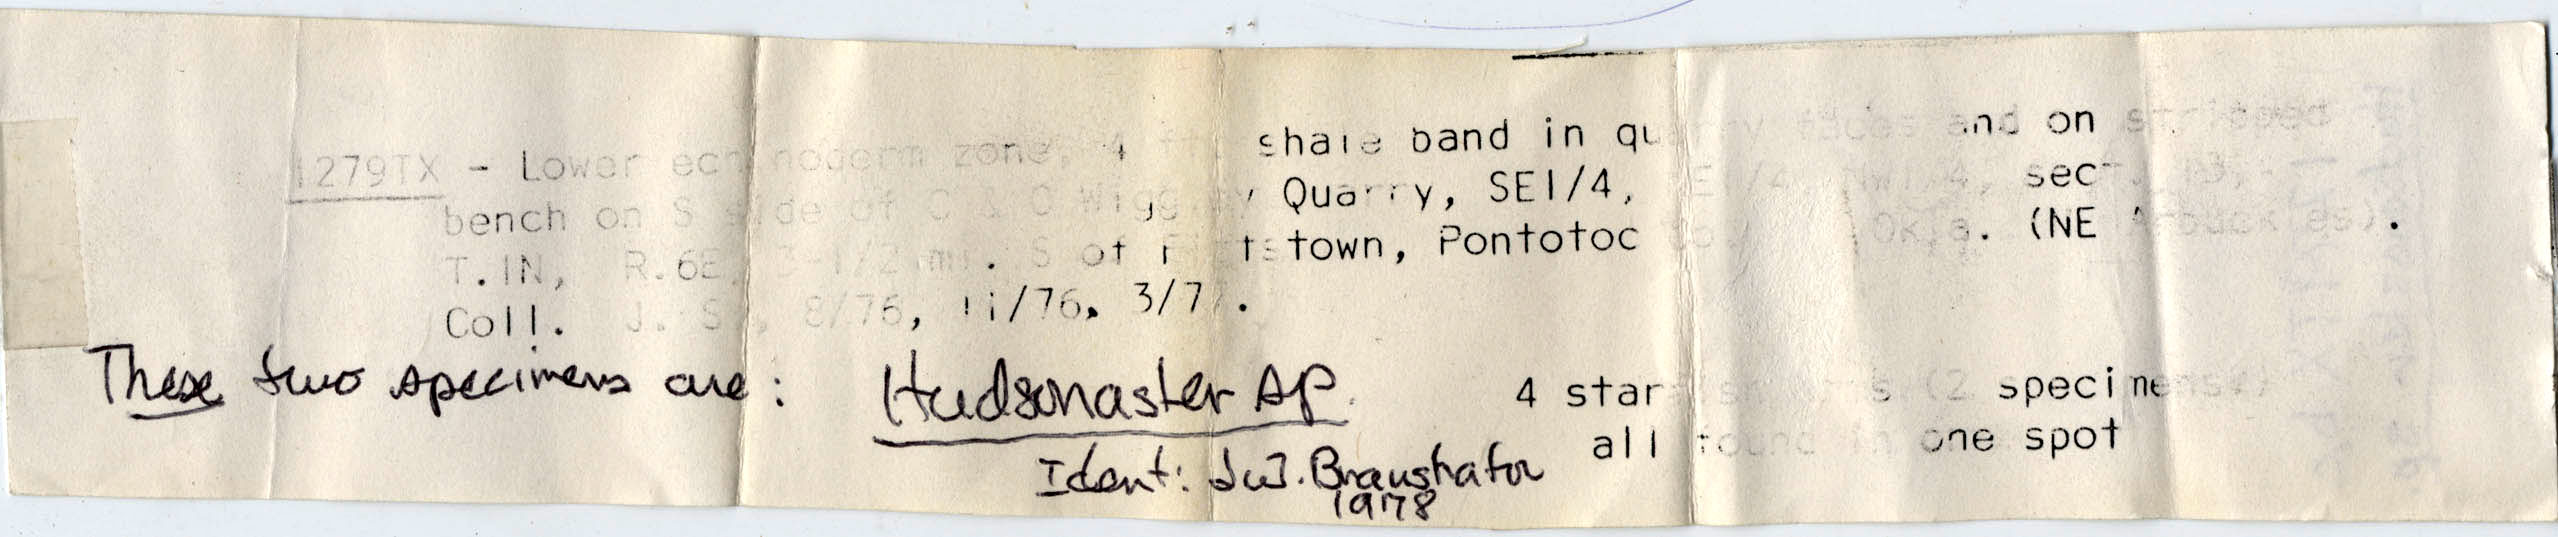 1279TX - Lower echinoderm zone, 4 ft. shale band in quarry faces and on stripped
bench on S side of C & C Wiggley Quarry, SE1/4, SE1/4, NW1/4, sect. 13,
T.1N, R.6E, 3-1/2 mi. S of Fittstown, Pontotoc Co., Okla. (NE Arbuckles).
Coll. J. S., 8/76, 11/76, 3/77.
These two specimens are: Hudsonaster sp.
4 starfish arms (2 specimens?)
all found in one spot
Ident: J.W. Branstrator
1978